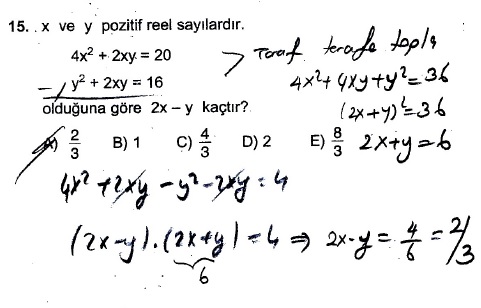 15. x ve y pozitif reel sayılardır.
4x² + 2xy = 20
y² + 2xy = 16
olduğuna göre 2x – y kaçtır?
A) 2/3 B) 1 C) 4/3 D) 2 E) 8/3
Taraf tarafa topla
4x² + 4xy + y² = 36
(2x+y)² = 36
2x + y = 6
4x² + 2xy – y² – 2xy = 4
(2x–y).(2x+y) = 4 ⇒ 2x-y = 4/6 = 2/3
6